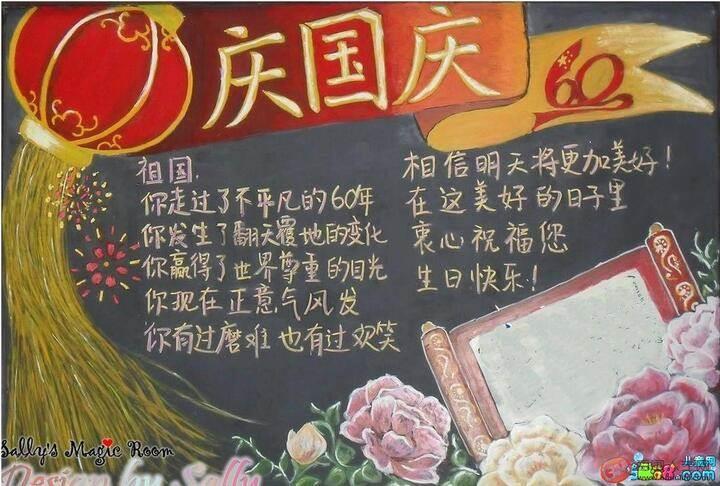 庆国庆
60
祖国，
你走过了不平凡的60年
你发生了翻天覆地的变化
你赢得了世界尊重的目光
你现在正意气风发
你有过磨难也有过欢笑
相信明天将更加美好！
在这美好的日子里
衷心祝福您
生日快乐！
Sally's Magic Room
Design by Sally
儿童网